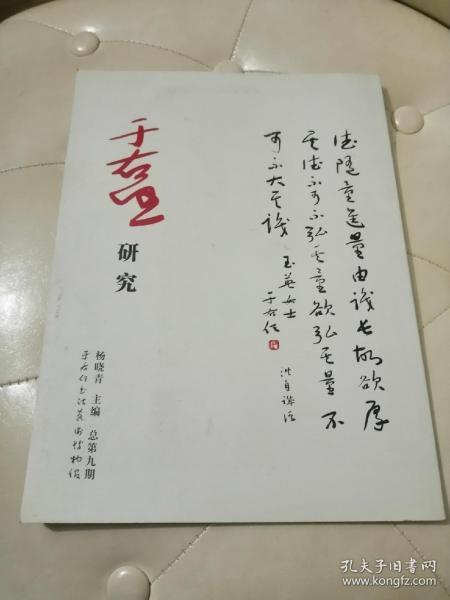 于右任
研究
德随量进量由识长故欲厚
其德不可不弘其量欲弘其量不
可不大其识
玉英女士
于右任
洪自诚语
杨晓青 主编 总第九期
于右任书法艺术博物馆
孔夫子旧书网
www.kongfz.com